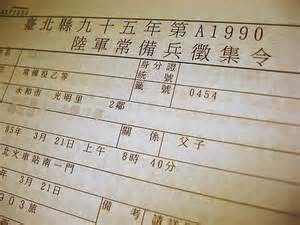 臺北縣九十五年第A1990
陸軍常備兵徵集令
身分證
統號
編 0454
常備役乙等
永和市 光明里 2鄰
關係 父子
95年 3月 21日 上午 8時 40分
北火車站南一門
年 3月 21日
903旅
備
考